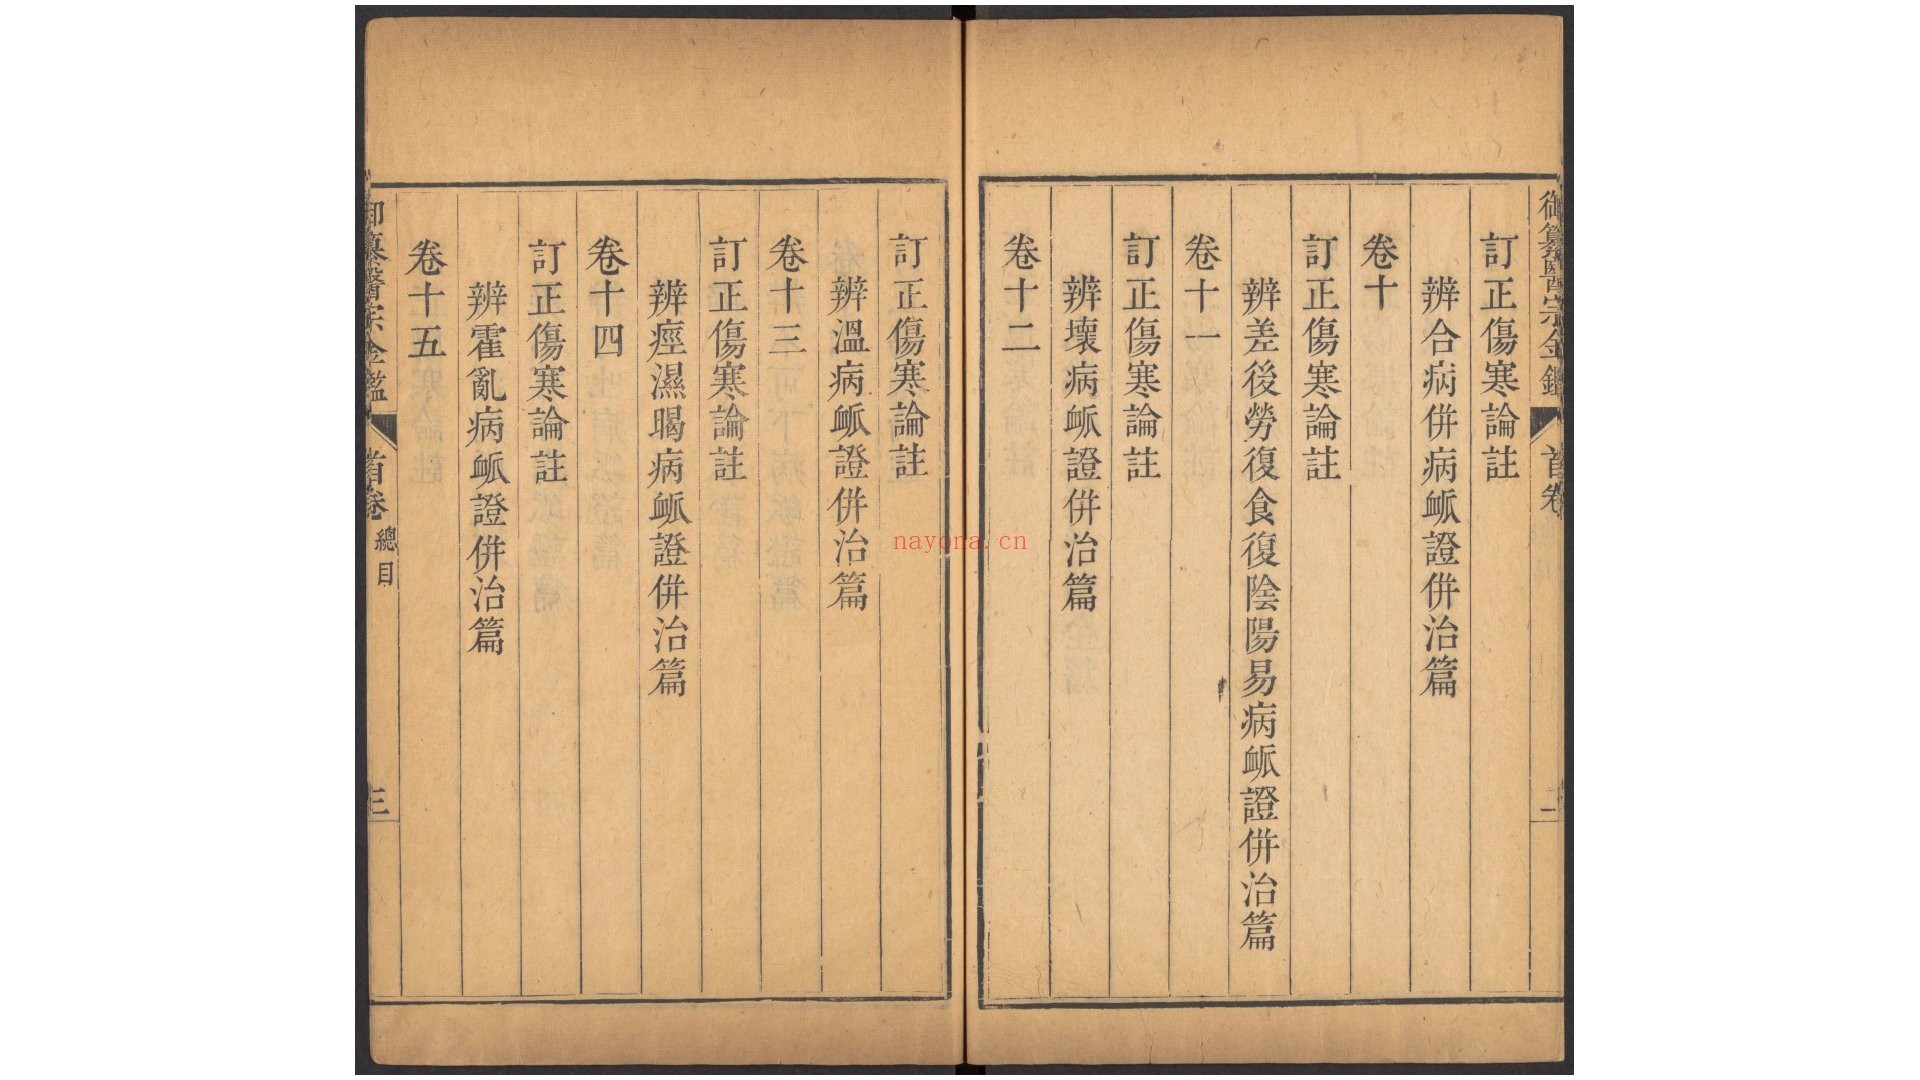 御纂醫宗金鑑 首卷 二
訂正傷寒論註
辨合病併病衇證併治篇
卷十
訂正傷寒論註
辨差後勞復食復陰陽易病衇證併治篇
卷十一
訂正傷寒論註
辨壞病衇證併治篇
卷十二
訂正傷寒論註
辨溫病衇證併治篇
卷十三
訂正傷寒論註
辨痙濕暍病衇證併治篇
卷十四
訂正傷寒論註
辨霍亂病衇證併治篇
卷十五
御纂醫宗金鑑 首卷 總目 三
nayona.cn